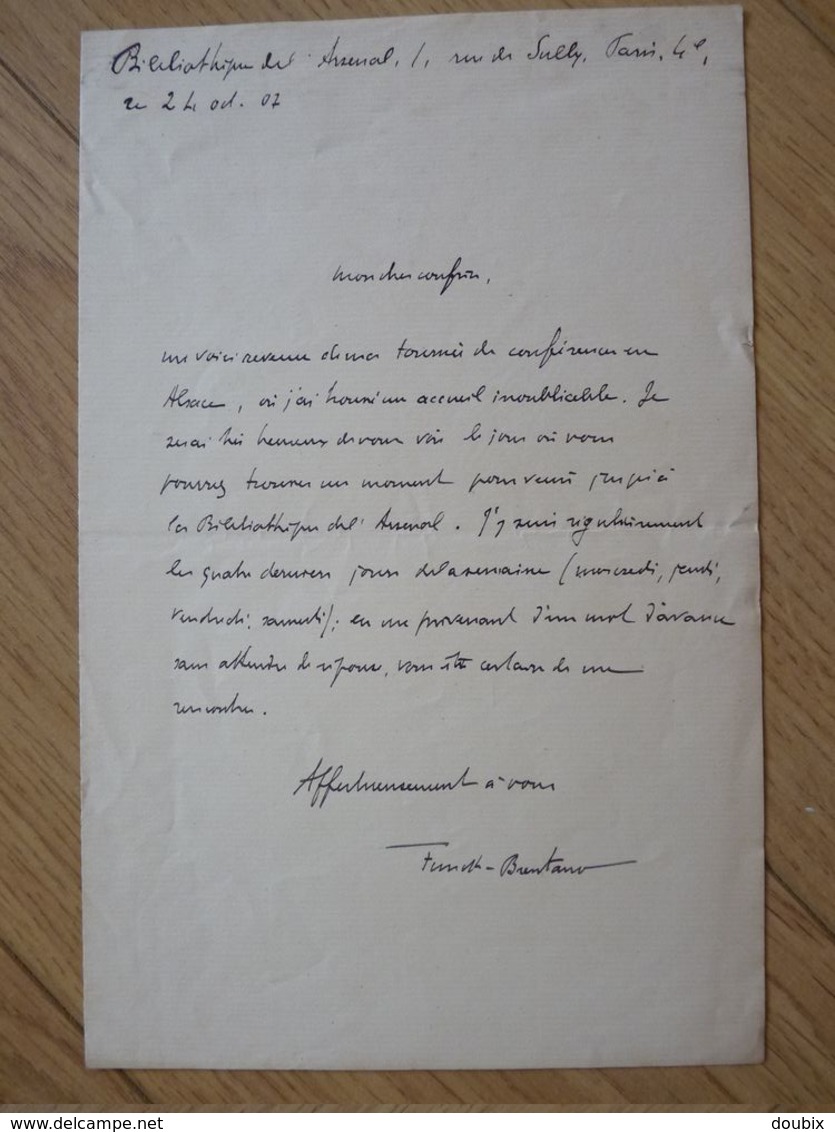 Bibliothèque de l'Arsenal, 1, rue de Sully, Paris, 4e,
ce 24 oct. 07
Mon cher confrère,
me voici revenu de ma tournée de conférences en
Alsace, où j'ai trouvé un accueil inoubliable. Je
serai très heureux de vous voir le jour où vous
pourrez trouver un moment pour venir jusqu'à
la Bibliothèque de l'Arsenal. J'y suis régulièrement
les quatre derniers jours de la semaine (mercredi, jeudi,
vendredi, samedi); en me prévenant d'un mot d'avance
sans attendre de réponse, vous êtes certain de me
rencontrer.
Affectueusement à vous
Funck-Brentano
Delcampe.net
doubix